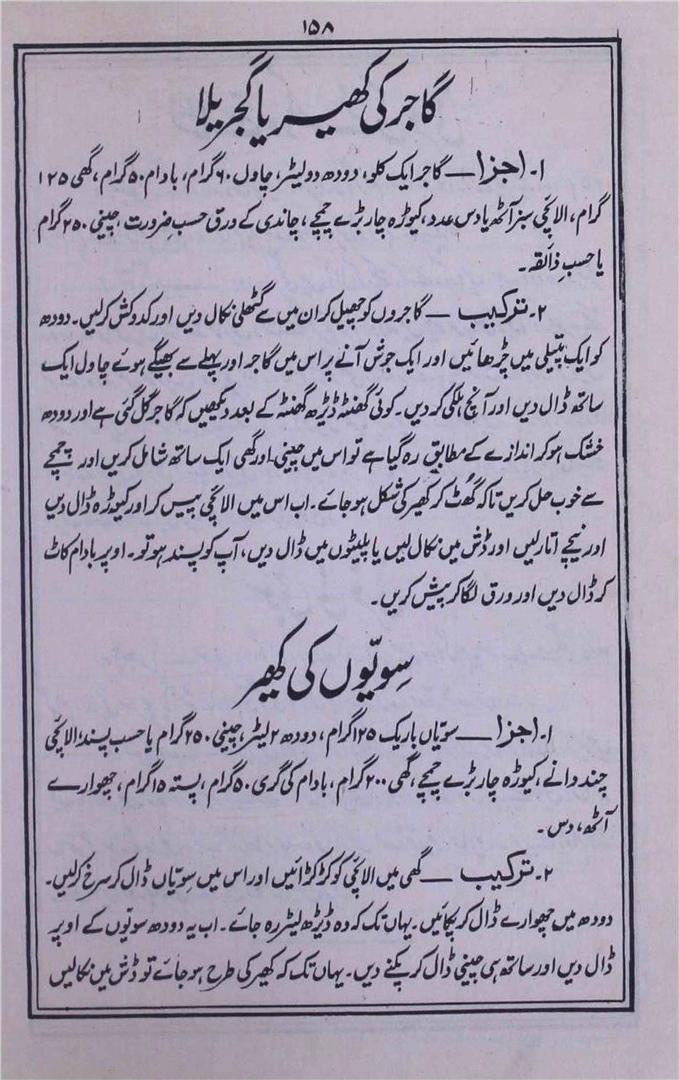 ۱۵۸
گاجر کی کھیر یا گجریلا
۱۔ اجزا — گاجر ایک کلو، دودھ دو لیٹر، چاول ۶۰ گرام، بادام ۵۰ گرام، گھی ۱۲۵
گرام، الائچی سبز آٹھ یا دس عدد، کیوڑہ چار بڑے چمچے، چاندی کے ورق حسب ضرورت، چینی ۲۵۰ گرام
یا حسبِ ذائقہ۔
۲۔ ترکیب — گاجروں کو چھیل کر ان میں سے گٹھلی نکال دیں اور کدوکش کرلیں۔ دودھ
کو ایک پتیلی میں چڑھائیں اور ایک جوش آنے پر اس میں گاجر اور پہلے سے بھیگے ہوئے چاول ایک
ساتھ ڈال دیں اور آنچ ہلکی کردیں۔ کوئی گھنٹہ ڈیڑھ گھنٹہ کے بعد دیکھیں کہ گاجر گل گئی ہے اور دودھ
خشک ہوکر اندازے کے مطابق رہ گیا ہے تو اس میں چینی۔ اور گھی ایک ساتھ شامل کریں اور چمچے
سے خوب حل کریں تاکہ گھُٹ کر کھیر کی شکل ہو جائے۔ اب اس میں الائچی پیس کر اور کیوڑہ ڈال دیں
اور نیچے اتارلیں اور ڈش میں نکال لیں یا پلیٹوں میں ڈال دیں، آپ کو پسند ہو تو۔ اوپر بادام کاٹ
کر ڈال دیں اور ورق لگا کر پیش کریں۔
سویّوں کی کھیر
۱۔ اجزا — سویّاں باریک ۱۲۵ گرام، دودھ ۲ لیٹر، چینی ۲۵۰ گرام یا حسب پسند، الائچی
چند دانے، کیوڑہ چار بڑے چمچے، گھی ۲۰۰ گرام، بادام کی گری ۵۰ گرام، پستہ ۱۵ گرام، چھوارے
آٹھ، دس۔
۲۔ ترکیب — گھی میں الائچی کو کڑکڑائیں اور اس میں سویّاں ڈال کر سرخ کرلیں۔
دودھ میں چھوارے ڈال کر پکائیں۔ یہاں تک کہ وہ ڈیڑھ لیٹر رہ جائے۔ اب یہ دودھ سویّوں کے اوپر
ڈال دیں اور ساتھ ہی چینی ڈال کر پکنے دیں۔ یہاں تک کہ کھیر کی طرح ہو جائے تو ڈش میں نکالیں